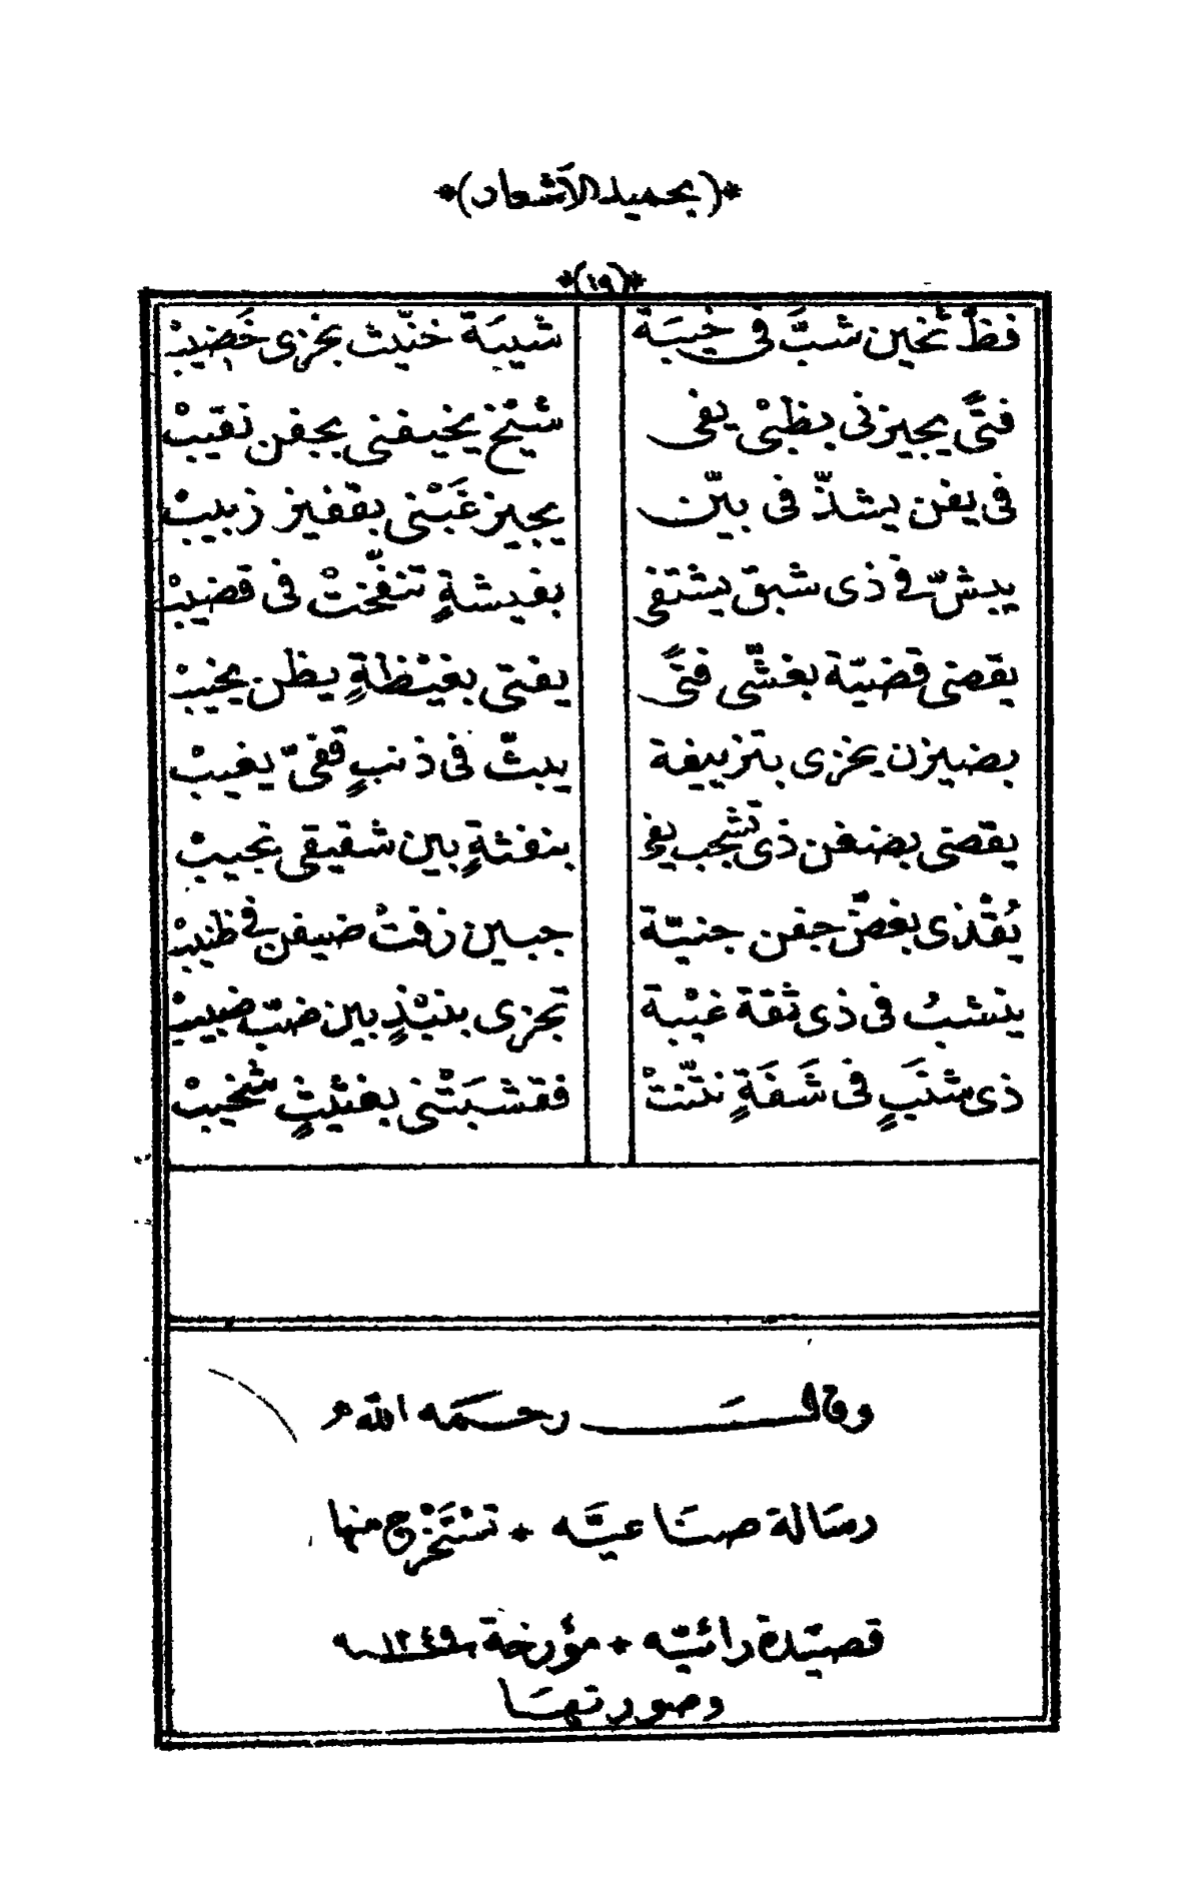 *(بحميد الأشعار)*
*(١٩)*
فظّ ثخين شبَّ فى خيبَة شيبَة خنّيث بخزى خَضيبْ
فتًى يجيزنى بظبْى يفى شيْخ يخيفنى بجفن نقيبْ
فى يفن يشذّ فى بيّن يجيز غَبْنى بقفيز زبيبْ
يبشّ فى ذى شبق يشتفى بفيشةٍ تنفّختْ فى قضيبْ
يقضى قضيّة بغشّى فتًى يفتى بغيْظةٍ يظن يخيبْ
بضيزن يخزى بتزييفة يبثّ فى ذنبٍ قفىّ يغيبْ
يقضى بضغن ذى تشجب بنفثةٍ بين شقيقى نجيبْ
يُقْذى بغضّ جفن جنيّة جبين زفتْ ضيفن فى ظنيبْ
ينشبُ فى ذى ثقة غيْبة تجزى بنبْذٍ بين ضبّة ضبيبْ
ذى شنَبٍ فى شَفَةٍ نتّنتْ فقشبَتْنى بغثيْثٍ شخيبْ
وقال رحمَه الله
رسَالة صنَاعيَّه * تسْتَخْرج منها
قصيَدة رائيَّه * مؤرخة ١٢٤٩
وصورتهَا